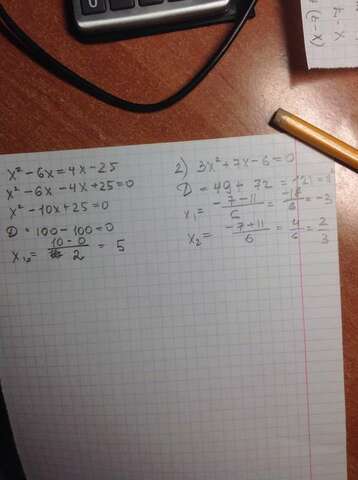 x² - 6x = 4x - 25
x² - 6x - 4x + 25 = 0
x² - 10x + 25 = 0
D = 100 - 100 = 0
x₁₂ = (10 - 0)/2 = 5
2) 3x² + 7x - 6 = 0
D = 49 + 72 = 121 =
x₁ = (-7 - 11)/6 = = -3
x₂ = (-7 + 11)/6 = 4/6 = 2/3
0